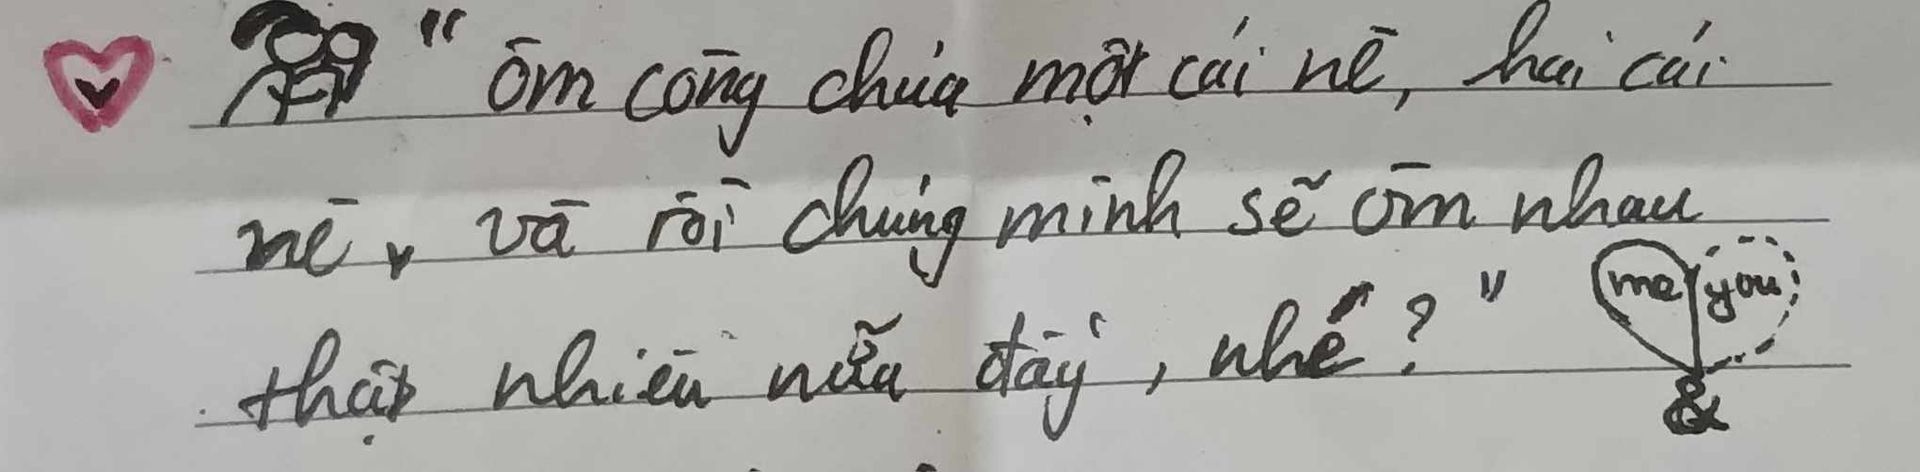 " ôm công chúa một cái nè, hai cái
nè, và rồi chúng mình sẽ ôm nhau
thật nhiều nữa đấy, nhé? "
me you
&